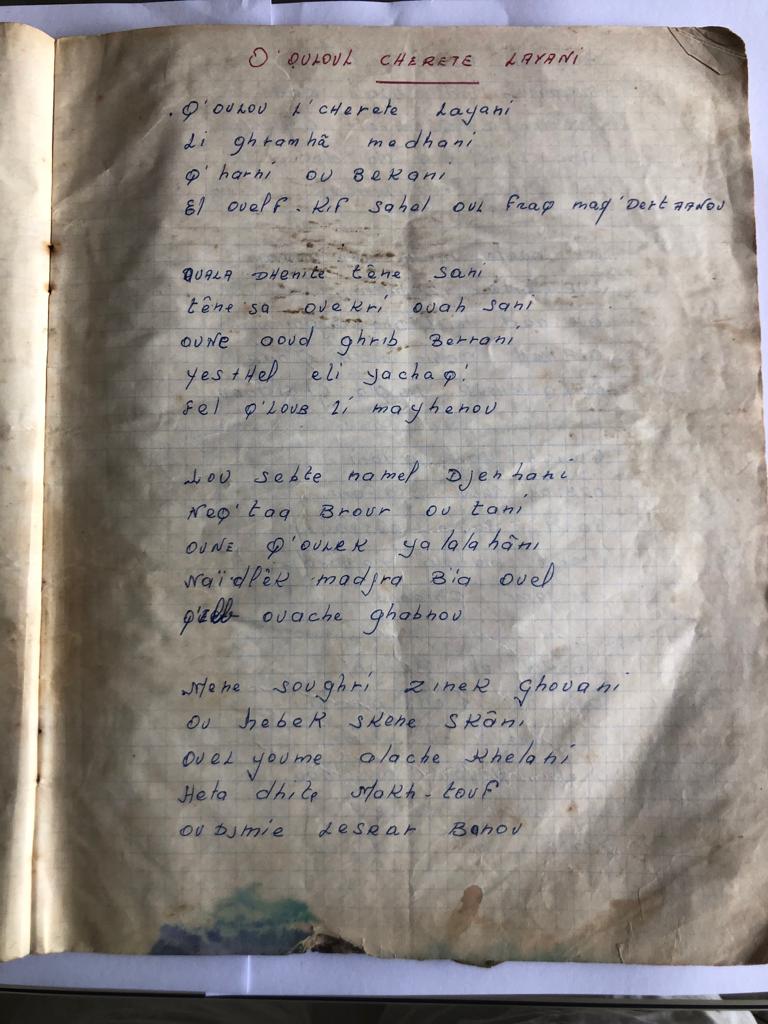 O' QULOUL CHERETE LAYANI
. Q'OULOU L'CHERETE Layani
Li ghramhã medhani
Q'harni OU BEKANI
El OUELF - KiF Sahel OUL Fraq maq'Dert AANOU
OUALA DHenite têne Sani
têne sa OUEKRi OUah Sani
OUNE aoud ghrib Berrani
yestHel eli yachaq'
Fel Q'LOUB Li mayhenou
LOU Sebte namel Djenhani
NeQ'taa Brour OU tani
OUNE Q'OULEK ya lalahâni
Naï-dlêk madjra Bïa OUel
OUache ghabnou
Mene soughri ZINEK Ghouani
OU hebek SKene SKâni
OUEL youme alache Khelani
Heta dhite Makh-touf
OU Djmie LESRar Banou